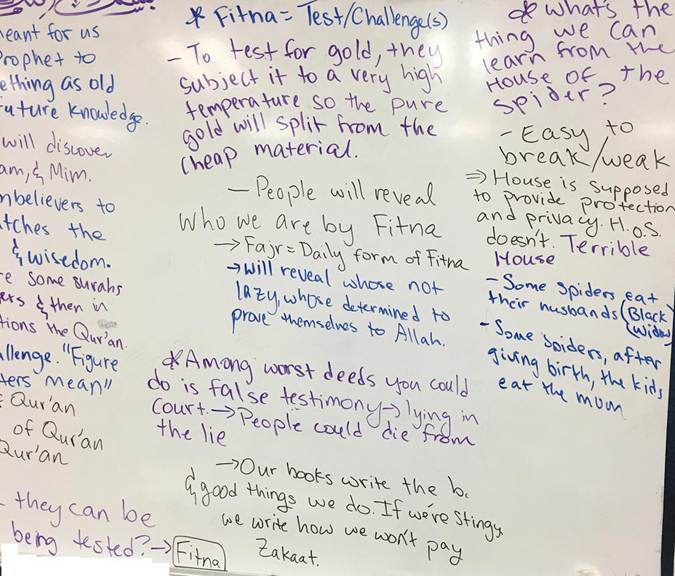 eant for us
rophet to
ething as old
uture knowledge.
will discover
am, & Mim.
nbelievers to
tches the
& wisedom.
e some surahs
ers & then in
tions the Qur'an.
allenge. "Figure
ters mean"
Qur'an
of Qur'an
Qur'an
they can be
being tested? → Fitna
* Fitna = Test/Challenge(s)
- To test for gold, they
subject it to a very high
temperature so the pure
gold will split from the
cheap material.
- People will reveal
who we are by Fitna
→ Fajr = Daily form of Fitna
→ will reveal whose not
lazy, whose determined to
prove themselves to Allah.
* Among worst deeds you could
do is false testimony → lying in
court. → People could die from
the lie
→ Our books write the b
& good things we do. If we're stingy,
we write how we won't pay
Zakaat.
* What's the
thing we can
learn from the
House of the
spider?
- Easy to
break/weak
⇒ House is supposed
to provide protection
and privacy. H.o.S.
doesn't. Terrible
House
- Some spiders eat
their husbands (Black
Widow)
- Some spiders, after
giving birth, the kids
eat the mum